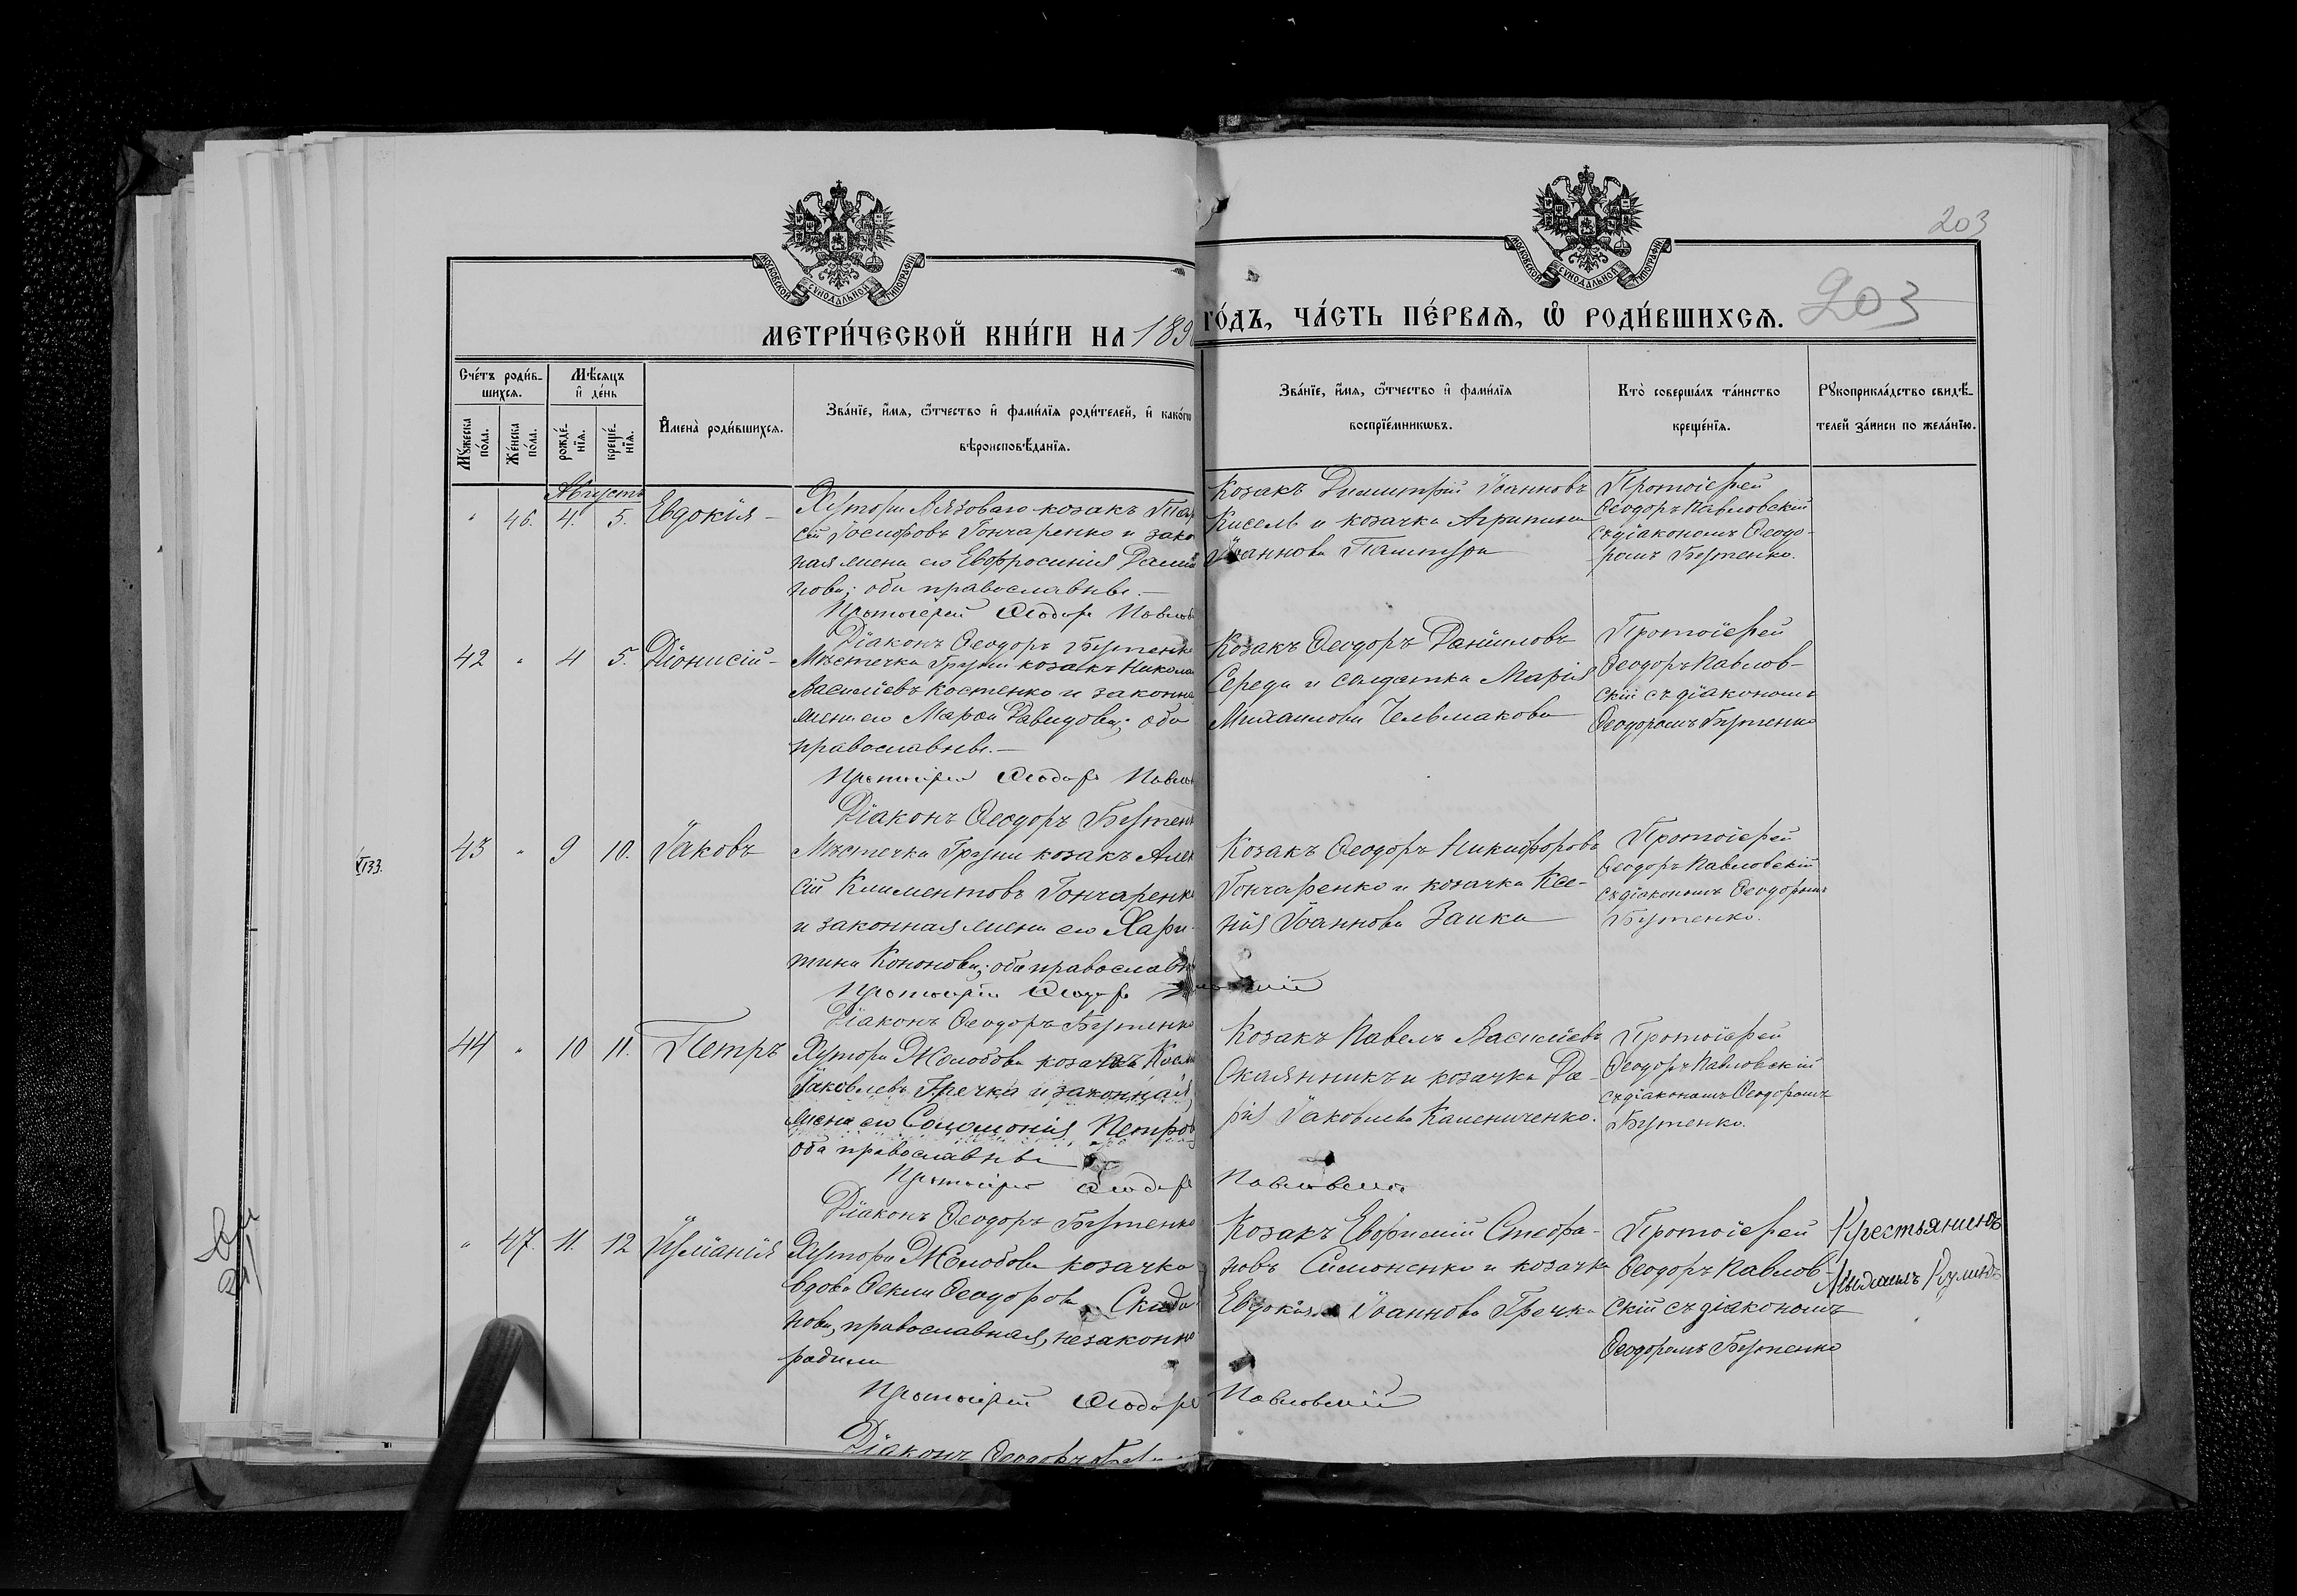 203
МОСКОВСКОЙ СѴНОДАЛЬНОЙ ТИПОГРАФІИ
МОСКОВСКОЙ СѴНОДАЛЬНОЙ ТИПОГРАФІИ
МЕТРИ́ЧЕСКОЙ КНИ́ГИ НА 189
ГО́ДЪ, ЧА́СТЬ ПЕ́РВАѦ, Ѡ҆ РОДИ́ВШИХСѦ.
203
Сче́тъ роди́в-
шихсѧ.
Мѣ́сѧцъ
и҆ де́нь
Мꙋ́жеска
по́ла.
Же́нска
по́ла.
рожде́-
нїѧ.
креще́-
нїѧ.
И҆мена̀ роди́вшихсѧ.
Зва́нїе, и҆́мѧ, ѻ҆́тчество и҆ фами́лїѧ роди́телей, и҆ како́гѡ
вѣроисповѣ́данїѧ.
Зва́нїе, и҆́мѧ, ѻ҆́тчество и҆ фами́лїѧ
воспрїе́мникѡвъ.
Кто̀ соверша́лъ та́инство
креще́нїѧ.
Рꙋкоприкла́дство свидѣ́-
телей за́писи по жела́нїю.
Августъ
" 46. 4. 5. Евдокія –
Хутора Вязоваго козакъ
сій Іосифовъ Гончаренко и зако
ная жена его Евфросинія Дамі
нова; оба православные. –
Протоіерей Ѳеодоръ Павлов
Діаконъ Ѳеодоръ Бутенко
Козакъ Димитрій Іоанновъ
Кисель и козачка Агрипина
Іоаннова
Протоіерей
Ѳеодоръ Павловскій
съ діакономъ Ѳеодо-
ромъ Бутенко.
42 " 4 5. Діонисій –
Мѣстечка Груни козакъ Никола
Василіевъ Костенко и законна
жена его Марѳа Давидова; оба
православные. –
Протоіерей Ѳеодоръ Павлов
Діаконъ Ѳеодоръ Бутен
Козакъ Ѳеодоръ Даніиловъ
Середа и солдатка Марія
Михаилова
Протоіерей
Ѳеодоръ Павлов-
скій съ діакономъ
Ѳеодоромъ Бутенко
43 " 9 10. Іаковъ
Мѣстечка Груни козакъ Алек
сій Климентовъ Гончаренко
и законная жена его Хари-
тина Кононова; оба православн
Протоіерей Ѳеодоръ
Діаконъ Ѳеодоръ Бутенко
Козакъ Ѳеодоръ Никифоровъ
Гончаренко и козачка Ксе-
нія Іоаннова Заика
Протоіерей
Ѳеодоръ Павловскій
съ діакономъ Ѳеодоромъ
Бутенко.
44 " 10 11. Петръ
Хутора Жолобова козакъ Косм
Іаковлевъ Гречка и законная
жена его Соломонія Петров
оба православные
Протоіерей Ѳеодоръ Павловскій
Діаконъ Ѳеодоръ Бутенко
Козакъ Павелъ Василіевъ
Скаянникъ и козачка Да-
рія Іаковлева Калениченко.
Протоіерей
Ѳеодоръ Павловскій
съ діакономъ Ѳеодоромъ
Бутенко.
" 47. 11. 12 Іуліанія
Хутора Жолобова козачка
вдова Ѳекла Ѳеодорова
нова, православная, незаконно
Протоіерей Ѳеодоръ Павловскій
Діаконъ Ѳеодоръ
Козакъ Евфимій Стефа-
новъ Симоненко и козачка
Евдокія Іоаннова Гречка
Протоіерей
Ѳеодоръ Павлов-
скій съ діакономъ
Ѳеодоромъ Бутенко
Крестьянинъ